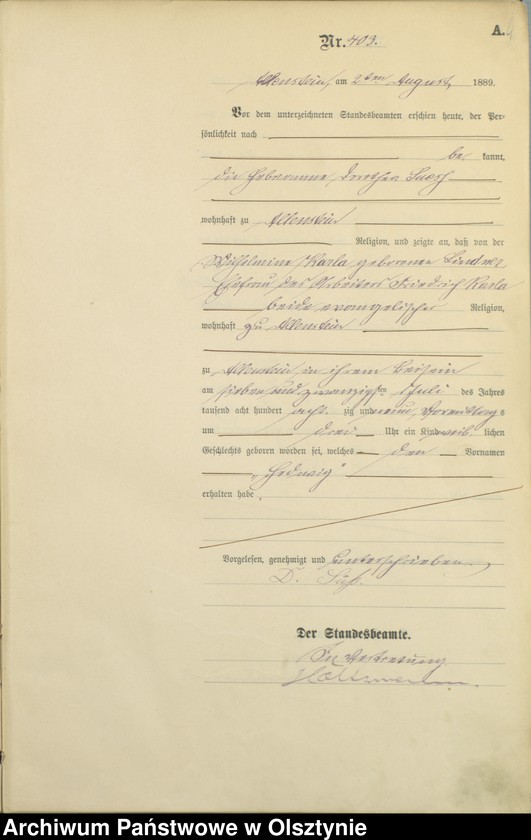 A.
Nr. 403.
Allenstein, am 2ten August 1889.
Vor dem unterzeichneten Standesbeamten erschien heute, der Per-
sönlichkeit nach
be kannt,
die Hebeamme Dorothea Suess
wohnhaft zu Allenstein
Religion, und zeigte an, daß von der
Wilhelmine Karla, geborenen
Ehefrau des Arbeiters Friedrich Karla
beide evangelischer Religion,
wohnhaft zu Allenstein
zu Allenstein in ihrem Beisein
am sieben und zwanzigsten Juli des Jahres
tausend acht hundert acht zig und neun, Vormittags
um drei Uhr ein Kind weib lichen
Geschlechts geboren worden sei, welches den Vornamen
"Hedwig"
erhalten habe.
Vorgelesen, genehmigt und unterschrieben.
D. Süß.
Der Standesbeamte.
In Vertretung
Archiwum Państwowe w Olsztynie